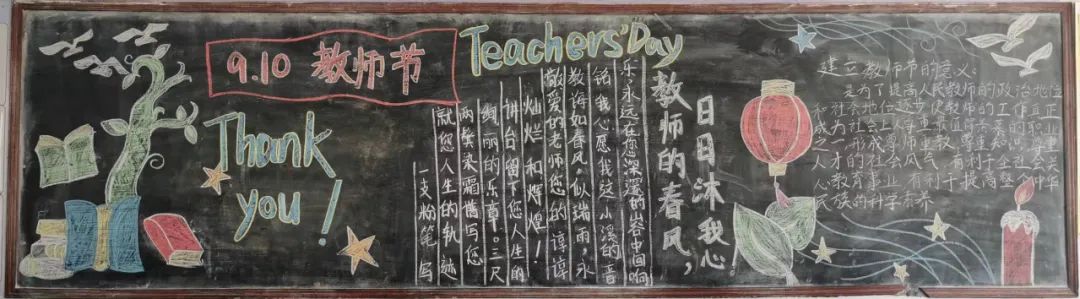 9.10 教师节
Thank
you!
Teachers' Day
一支粉笔,写
就您人生的轨迹
两鬓染霜谱写您
绚丽的乐章。三尺
讲台留下您人生的
灿烂和辉煌!
敬爱的老师您的谆谆
教诲如春风,似瑞雨,永
铭我心愿我这小溪的音
乐永远在您深深的山谷中回响
教师的春风,
日日沐我心。
建立教师节的意义:
是为了提高人民教师的政治地位
和社会地位逐步使教师的工作真正
成为社会上尊重最值得羡慕的职业
之一形成尊师重教尊重知识尊重
人才的社会风气,有利于全社会关
心教育事业,有利于提高整个中华
民族的科学素养